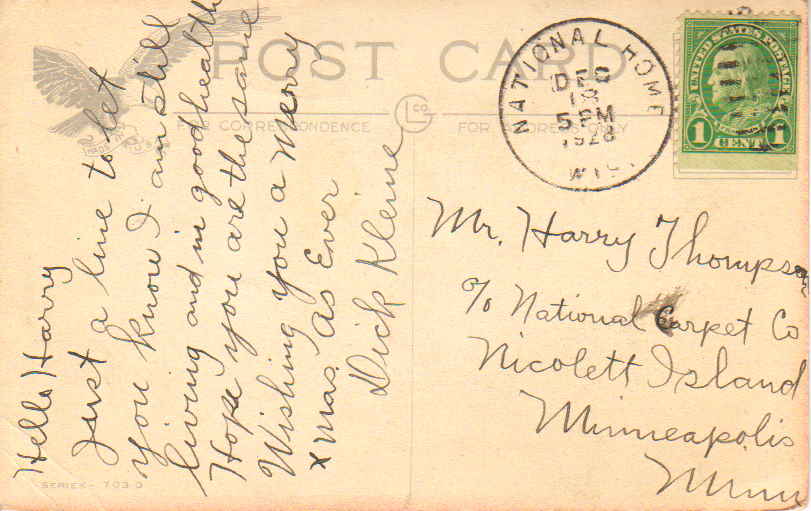 POST CARD
FOR CORRESPONDENCE
FOR ADDRESS ONLY
MADE IN U.S.A.
L Co
NATIONAL HOME
DEC
18
5 PM
1928
WIS.
UNITED STATES POSTAGE
1 CENT 1
Hello Harry
Just a line to let
you know I am still
living and in good health
Hope you are the same
Wishing you a Merry
Xmas. As Ever
Dick Kleine
Mr. Harry Thompson
c/o National Carpet Co
Nicolett Island
Minneapolis
Minn
SERIES- 703 D